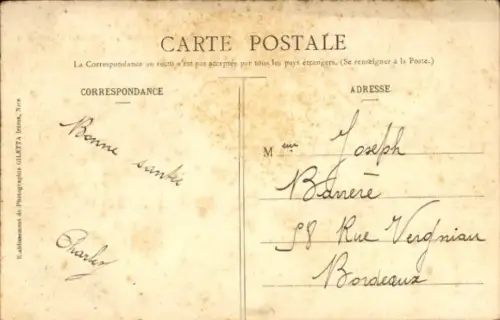 CARTE POSTALE
La Correspondance au recto n'est pas acceptée par tous les pays étrangers. (Se renseigner à la Poste.)
CORRESPONDANCE
ADRESSE
Bonne santé
Charles
M
Joseph
Barrère
58 Rue Vergniau
Bordeaux
Etablissement de Photographie GILETTA frères, Nice